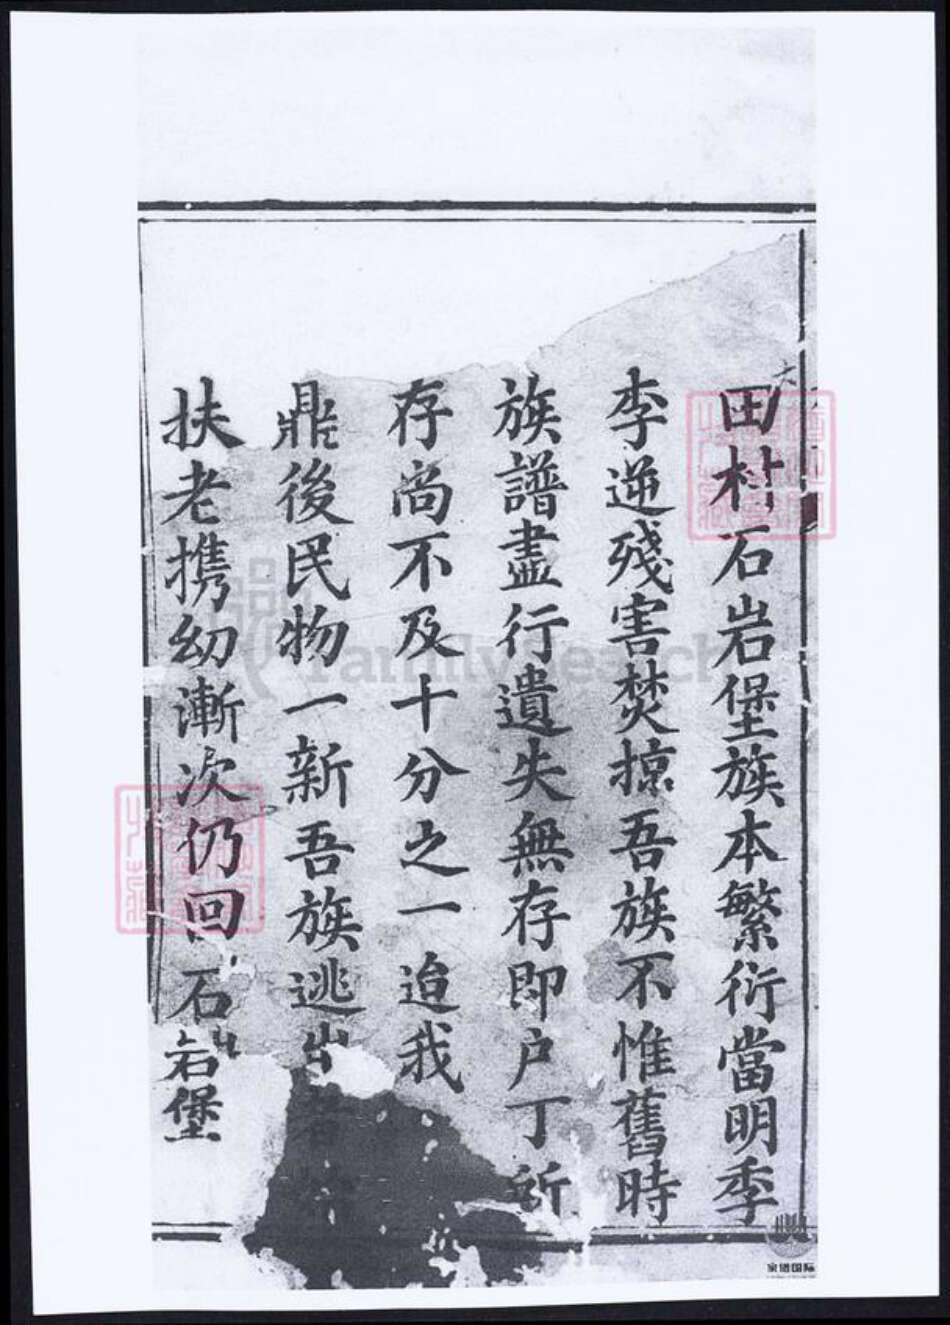 田村石岩堡族本繁衍當明季
李逆殘害焚掠吾族不惟舊時
族譜盡行遺失無存即户丁所
存尚不及十分之一迨我
鼎後民物一新吾族逃出
扶老携幼漸次仍回石岩堡
FamilySearch
家谱国际